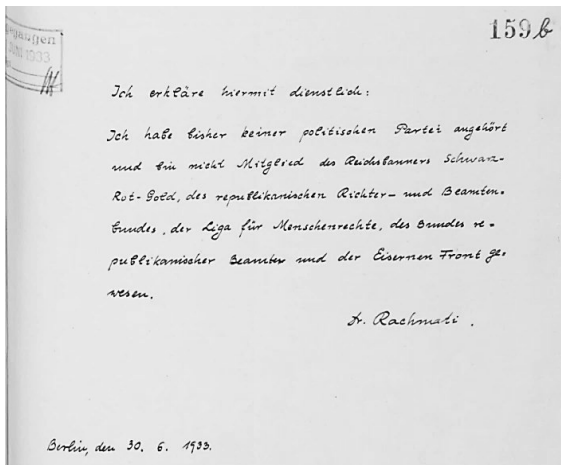 159b
gegangen
JUNI 1933
Ich erkläre hiermit dienstlich:
Ich habe bisher keiner politischen Partei angehört
und bin nicht Mitglied des Reichsbanners Schwarz-
Rot-Gold, des republikanischen Richter- und Beamten-
bundes, der Liga für Menschenrechte, des Bundes re-
publikanischer Beamter und der Eisernen Front ge-
wesen.
Dr. Rachmati.
Berlin, den 30. 6. 1933.